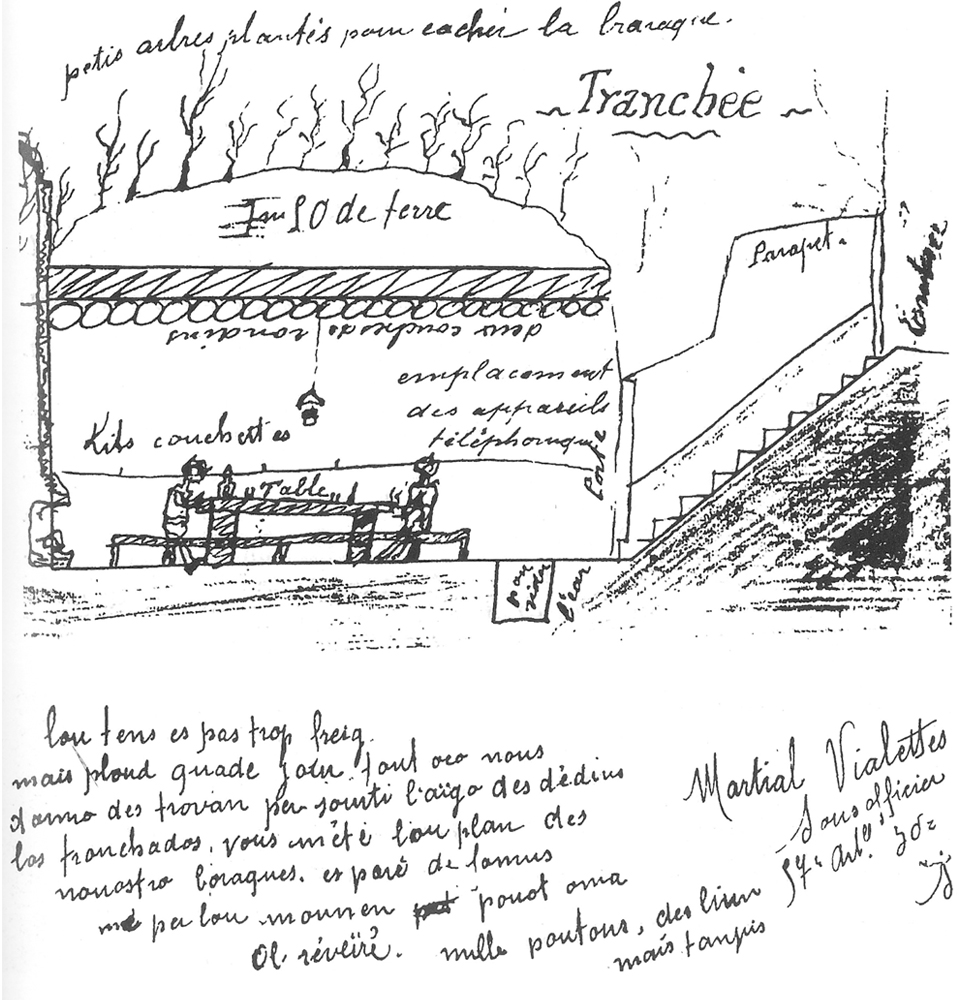 petis arbres plantés pour cacher la baraque.
~ Tranchée ~
1m50 de terre
Parapet.
deux couches de rondins
emplacement
des appareils
téléphonique
Kits couchettes
Porte
"Table"
pour
vider
l'eau
lou tens es pas trop fresq.
mais ploud quade jour. tout oco nous
donno des trovan per sourti l'aïgo des dédins
los tranchados. vous mété lou plan des
nouostro boraques. es paré de lomus
per lou mouren pouot ona
Ol révéïré. mille poutous, des liuen
mais tanpis
Martial Vialettes
Sous officier
57e Art.